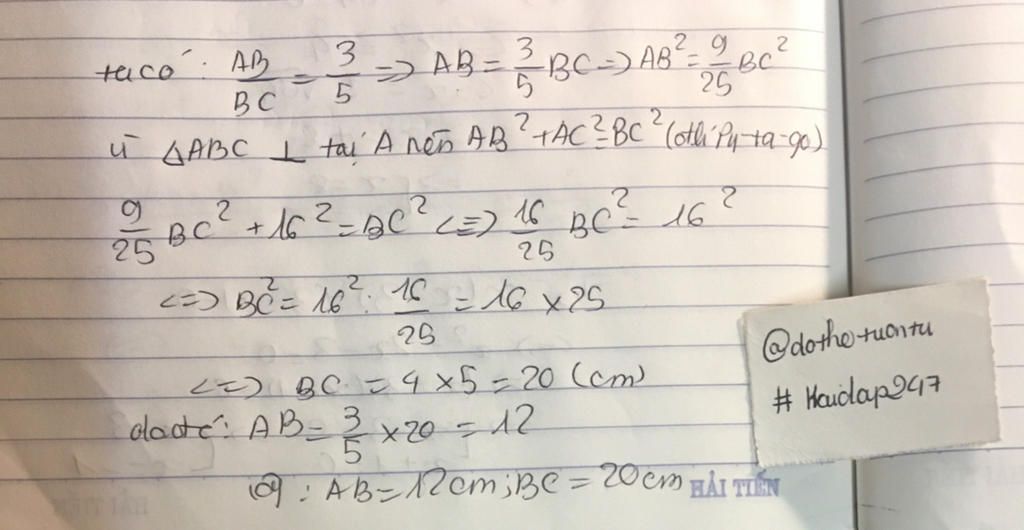 ta có: AB/BC = 3/5 => AB = 3/5 BC => AB² = 9/25 BC²
vì △ABC ⊥ tại A nên AB² + AC² = BC² (đ/lí Py-ta-go)
9/25 BC² + 16² = BC² <=> 16/25 BC² = 16²
<=> BC² = 16² : 16/25 = 16 × 25
<=> BC = 4 × 5 = 20 (cm)
do đó: AB = 3/5 × 20 = 12
Vậy: AB = 12cm; BC = 20cm
HẢI TIẾN
@dothetuantu
#Hoidap247